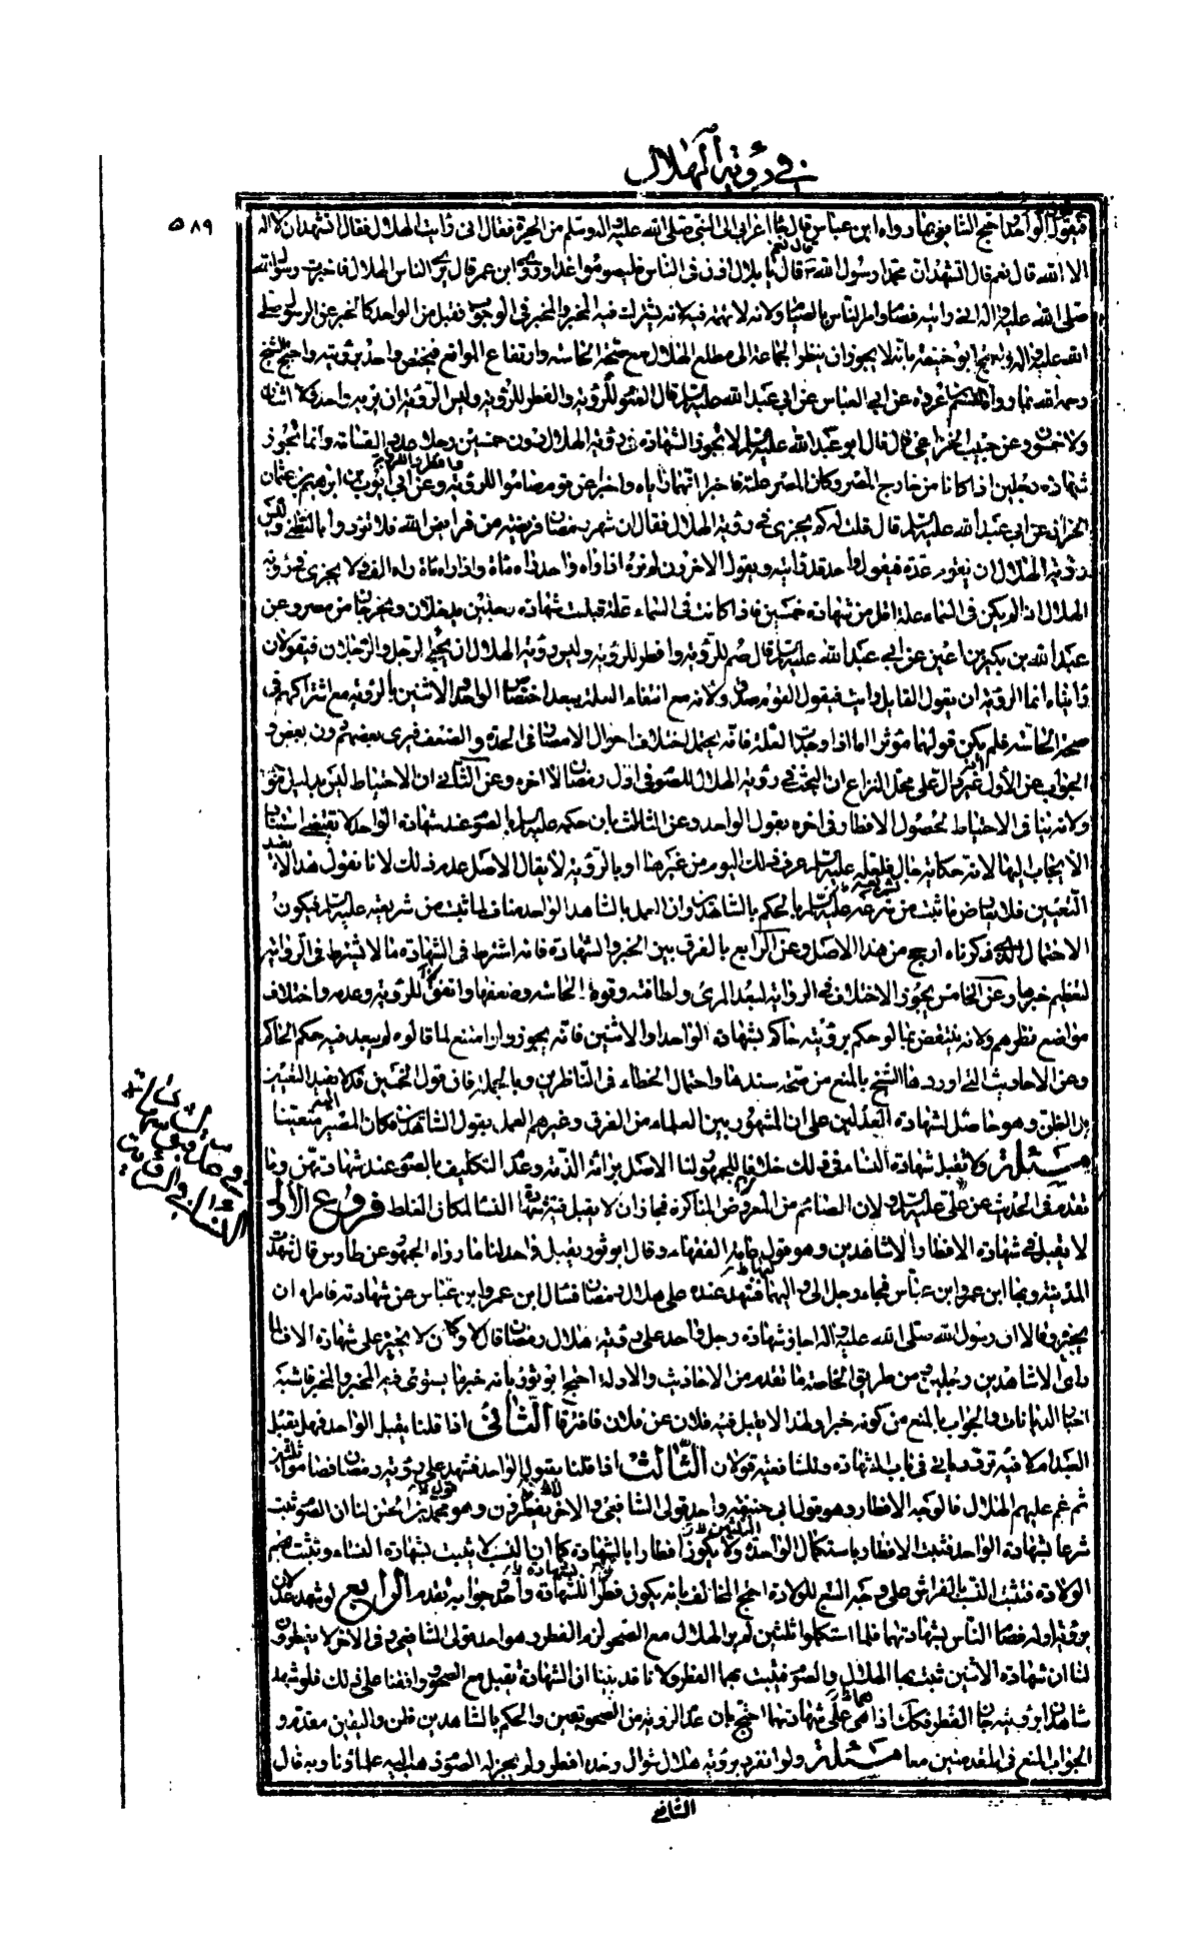 في رؤية الهلال
٥٨٩
فيقول الواحد احتج الشافعي بما رواه ابن عباس قال جاء اعرابي الى النبي صلى الله عليه واله وسلم من الحرة فقال اني رايت الهلال فقال اتشهد ان لا اله
الا الله قال نعم قال اتشهد ان محمدا رسول الله قال نعم قال يا بلال اذن في الناس فليصوموا غدا وروى ابن عمر قال الناس الهلال فاخبرت رسول الله
صلى الله عليه واله اني رايته فصام وامر الناس بالصيام ولانه لا تهمة فيه لانه يشترك فيه المخبر والمخبر في الوجوب فقبل من الواحد كالخبر عن الرسول صلى
الله عليه واله ابو حنيفة بانه لا يجوز ان ينظر الجماعة الى مطلع الهلال مع صحة الحاسة وارتفاع الموانع فيختص واحد برؤيته واحتج الشيخ
رحمه الله بما رواه القاسم بن عروة عن ابي العباس عن ابي عبد الله عليه السلم قال الصوم للرؤية والفطر للرؤية وليس الرؤية ان يراه واحد ولا اثنان
ولا خمسون وعن حبيب الخزاعي قال قال ابو عبد الله عليه السلم لا تجوز الشهادة في رؤية الهلال دون خمسين رجلا عدد القسامة وانما تجوز
شهادة رجلين اذا كانا من خارج المصر وكان بالمصر علة فاخبرا انهما راياه واخبرا عن قوم صاموا للرؤية وعن ابي ايوب ابراهيم بن عثمان
الخزاز عن ابي عبد الله عليه السلم قال قلت له كم يجزي في رؤية الهلال فقال ان شهر رمضان فريضة من فرايض الله فلا تؤدوا بالتظني وليس
رؤية الهلال ان يقوم عدة فيقول واحد قد رايته ويقول الاخرون لم نره اذا راه واحد راه مائة واذا راه مائة راه الف ولا يجزي في رؤية
الهلال اذا لم يكن في السماء علة اقل من شهادة خمسين فاذا كانت في السماء علة قبلت شهادة رجلين يدخلان ويخرجان من مصر وعن
عبد الله بن بكير بن اعين عن ابي عبد الله عليه السلم قال صم للرؤية وافطر للرؤية وليس رؤية الهلال ان يجيء الرجل والرجلان فيقولان
راينا انما الرؤية ان يقول القايل رايت فيقول القوم صدق ولانه مع انتفاء العلة يبعد اختصاص الواحد والاثنين بالرؤية مع اشتراكهم في
صحة الحاسة فلم يكن قولهما مؤثرا اما اذا وجدت العلة فانه يحتمل اختلاف احوال الابصار في الحدة والضعف فيرى بعضهم دون بعض و
الجواب عن الاول انه غير دال على محل النزاع اذ البحث في رؤية الهلال للصوم في اول رمضان لا اخره وعن الثاني ان الاحتياط ليس بدليل
ولانه ينافي الاحتياط لحصول الافطار في اخره بقول الواحد وعن الثالث بان حكمه عليه السلم بالصوم عند شهادة الواحد لا يقتضي استناد
الايجاب اليها لانه حكاية حال فلعله عليه السلم عرف ذلك اليوم من غيرها او بالرؤية لا يقال الاصل عدم ذلك لانا نقول هذا لا يفيد
اليقين فلا يعارض ما ثبت من شرعه عليه السلم بالحكم بالشاهدين وان العمل بالشاهد الواحد مناف لما ثبت من شريعته عليه السلم فيكون
الاحتمال الذي ذكرناه ارجح من هذا الاصل وعن الرابع بالفرق بين الخبر والشهادة فانه اشترط في الشهادة ما لا يشترط في الرواية
لتعظيم خبرها وعن الخامس بجواز الاختلاف في الرؤية لبعد المرئي ولطافته وقوة الحاسة وضعفها واتفاق للرؤية وعدمه واختلاف
مواضع نظرهم ولانه ينتقض بما لو حكم برؤيته حاكم بشهادة الواحد او الاثنين فانه يجوز ولو امتنع لما قالوه لم يبعد فيه حكم الحاكم
وعن الاحاديث التي اوردها الشيخ بالمنع من صحة سندها واحتمال الخطاء في الناظرين وبالجملة فان قول الخمسين قد لا يفيد اليقين
بل الظن وهو حاصل بشهادة العدلين على ان المشهور بين العلماء من الفرق وغيرهم العمل بقول الشاهدين فكان المصير اليه متعينا
مسئلة ولا تقبل شهادة النساء في ذلك خلافا للجمهور لنا الاصل براءة الذمة وعدم التكليف بالصوم عند شهادتهن وما
تقدم في الحديث عن علي عليه السلم ولان الصيام من الفروض المتاكدة فجاز ان لا يقبل فيه شهادة النساء لمكان الغلط فروع الاول
لا يقبل في شهادة الافطار الا شاهدين وهو قول عامة الفقهاء وقال ابو ثور يقبل واحد لنا ما رواه الجمهور عن طاوس قال شهدت
المدينة وبها ابن عمر وابن عباس فجاء رجل الى واليها فشهد عنده على هلال رمضان فسال ابن عمر وابن عباس عن شهادته فامراه ان
يجيزه وقالا ان رسول الله صلى الله عليه واله اجاز شهادة رجل واحد على رؤية هلال رمضان قالا وكان لا يجيز على شهادة الافطار
الا شاهدين رجلين ومن طريق الخاصة ما تقدم من الاحاديث والادلة احتج ابو ثور بانه خبر ما يستوي فيه المخبر والمخبر فاشبه
اخبار الديانات والجواب بالمنع من كونه خبرا ولهذا لا يقبل فيه فلان عن فلان فافترقا الثاني اذا قلنا يقبل الواحد فهل يقبل
العبد ام لا فيه تردد ياتي في باب الشهادة وللشافعية قولان الثالث اذا قلنا بقبول الواحد فشهد على رؤية رمضان فصاموا ثلثين
ثم غم عليهم الهلال فالوجه الافطار وهو قول ابي حنيفة واحد قولي الشافعي والاخر لا يفطرون وهو قول محمد بن الحسن لنا ان الصوم ثبت
شرعا بشهادة الواحد فثبت الافطار باستكمال الواحدة ولا يكون افطارا بالشهادة كما ان النسب لا يثبت بشهادة النساء وتثبت بهن
الولادة فتثبت النسب بالفراش على وجه التبع للولادة احتج المخالف بانه يكون فطرا بشهادة واحد وجوابه تقدم الرابع لو شهد عدلان
برؤية اوله فصام الناس بشهادتهما فلما استكملوا ثلثين لم ير الهلال مع الصحو لزم الفطر وهو احد قولي الشافعي وفي الاخر لا يفطرون
لنا ان شهادة الاثنين ثبت بها الهلال والصوم فيثبت بها الفطر ولانا قد بينا ان الشهادة تقبل مع الصحو ووافقنا على ذلك فلو شهد
شاهدان برؤيته جاز الفطر فكذا اذا على شهادتهما احتج بان عدم الرؤية مع الصحو يقين والحكم بالشاهدين ظن واليقين مقدم و
الجواب المنع في المقدمتين معا مسئلة ولو انفرد برؤية هلال شوال وحده افطر ولم يجز له الصوم ذهب اليه علماؤنا وبه قال
الشافعي